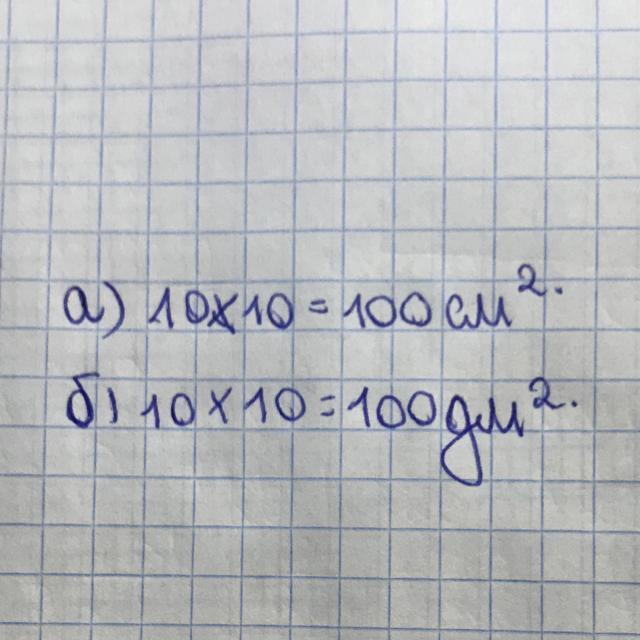 а) 10×10=100 см².
б) 10×10=100 дм².